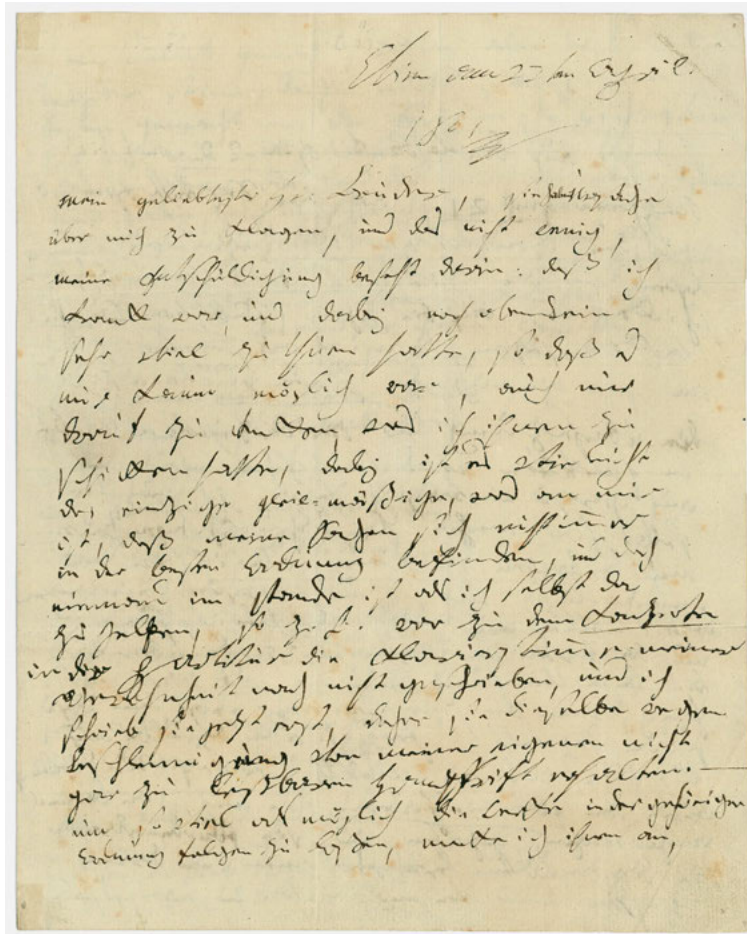 Vien den 22ten April.
1801
mein geliebtester Hr. Bruder, sie haben Ursache
über mich zu klagen, und das nicht wenig,
meine Entschuldigung besteht darin: daß ich
krank war, und dabey noch obendrein
sehr viel zu thuen hatte, so daß es
mir kaum möglich war, auch nur
drauf zu denken, was ich ihnen zu
schicken hatte, dabey ist es vieleicht
das einzige genie-mäßige, was an mir
ist, daß meine Sachen sich nicht immer
in der besten Ordnung befinden, und doch
niemand im stande ist als ich selbst da
zu helfen, so z.B. war zu dem Konzerte
in der Partitur die Klavierstimme meiner
Gewohnheit nach nicht geschrieben, und ich
schrieb sie jezt erst, daher sie dieselbe wegen
beschleunigung von meiner eigenen nicht
gar zu lesbaren Handschrift erhalten. —
um so viel als möglich die Werke in der gehörigen
Ordnung folgen zu laßen, merke ich ihnen an,